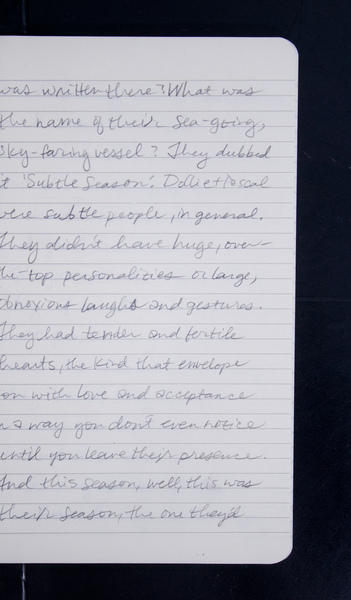 was written there? What was
the name of their sea-going,
sky-faring vessel? They dubbed
it 'Subtle Season'. Dollie + Pascal
were subtle people, in general.
They didn't have huge, over-
the-top personalities or large,
obnoxious laughs and gestures.
They had tender and fertile
hearts, the kind that envelope
you with love and acceptance
in a way you don't even notice
until you leave their presence.
And this season, well, this was
their season, the one they'd